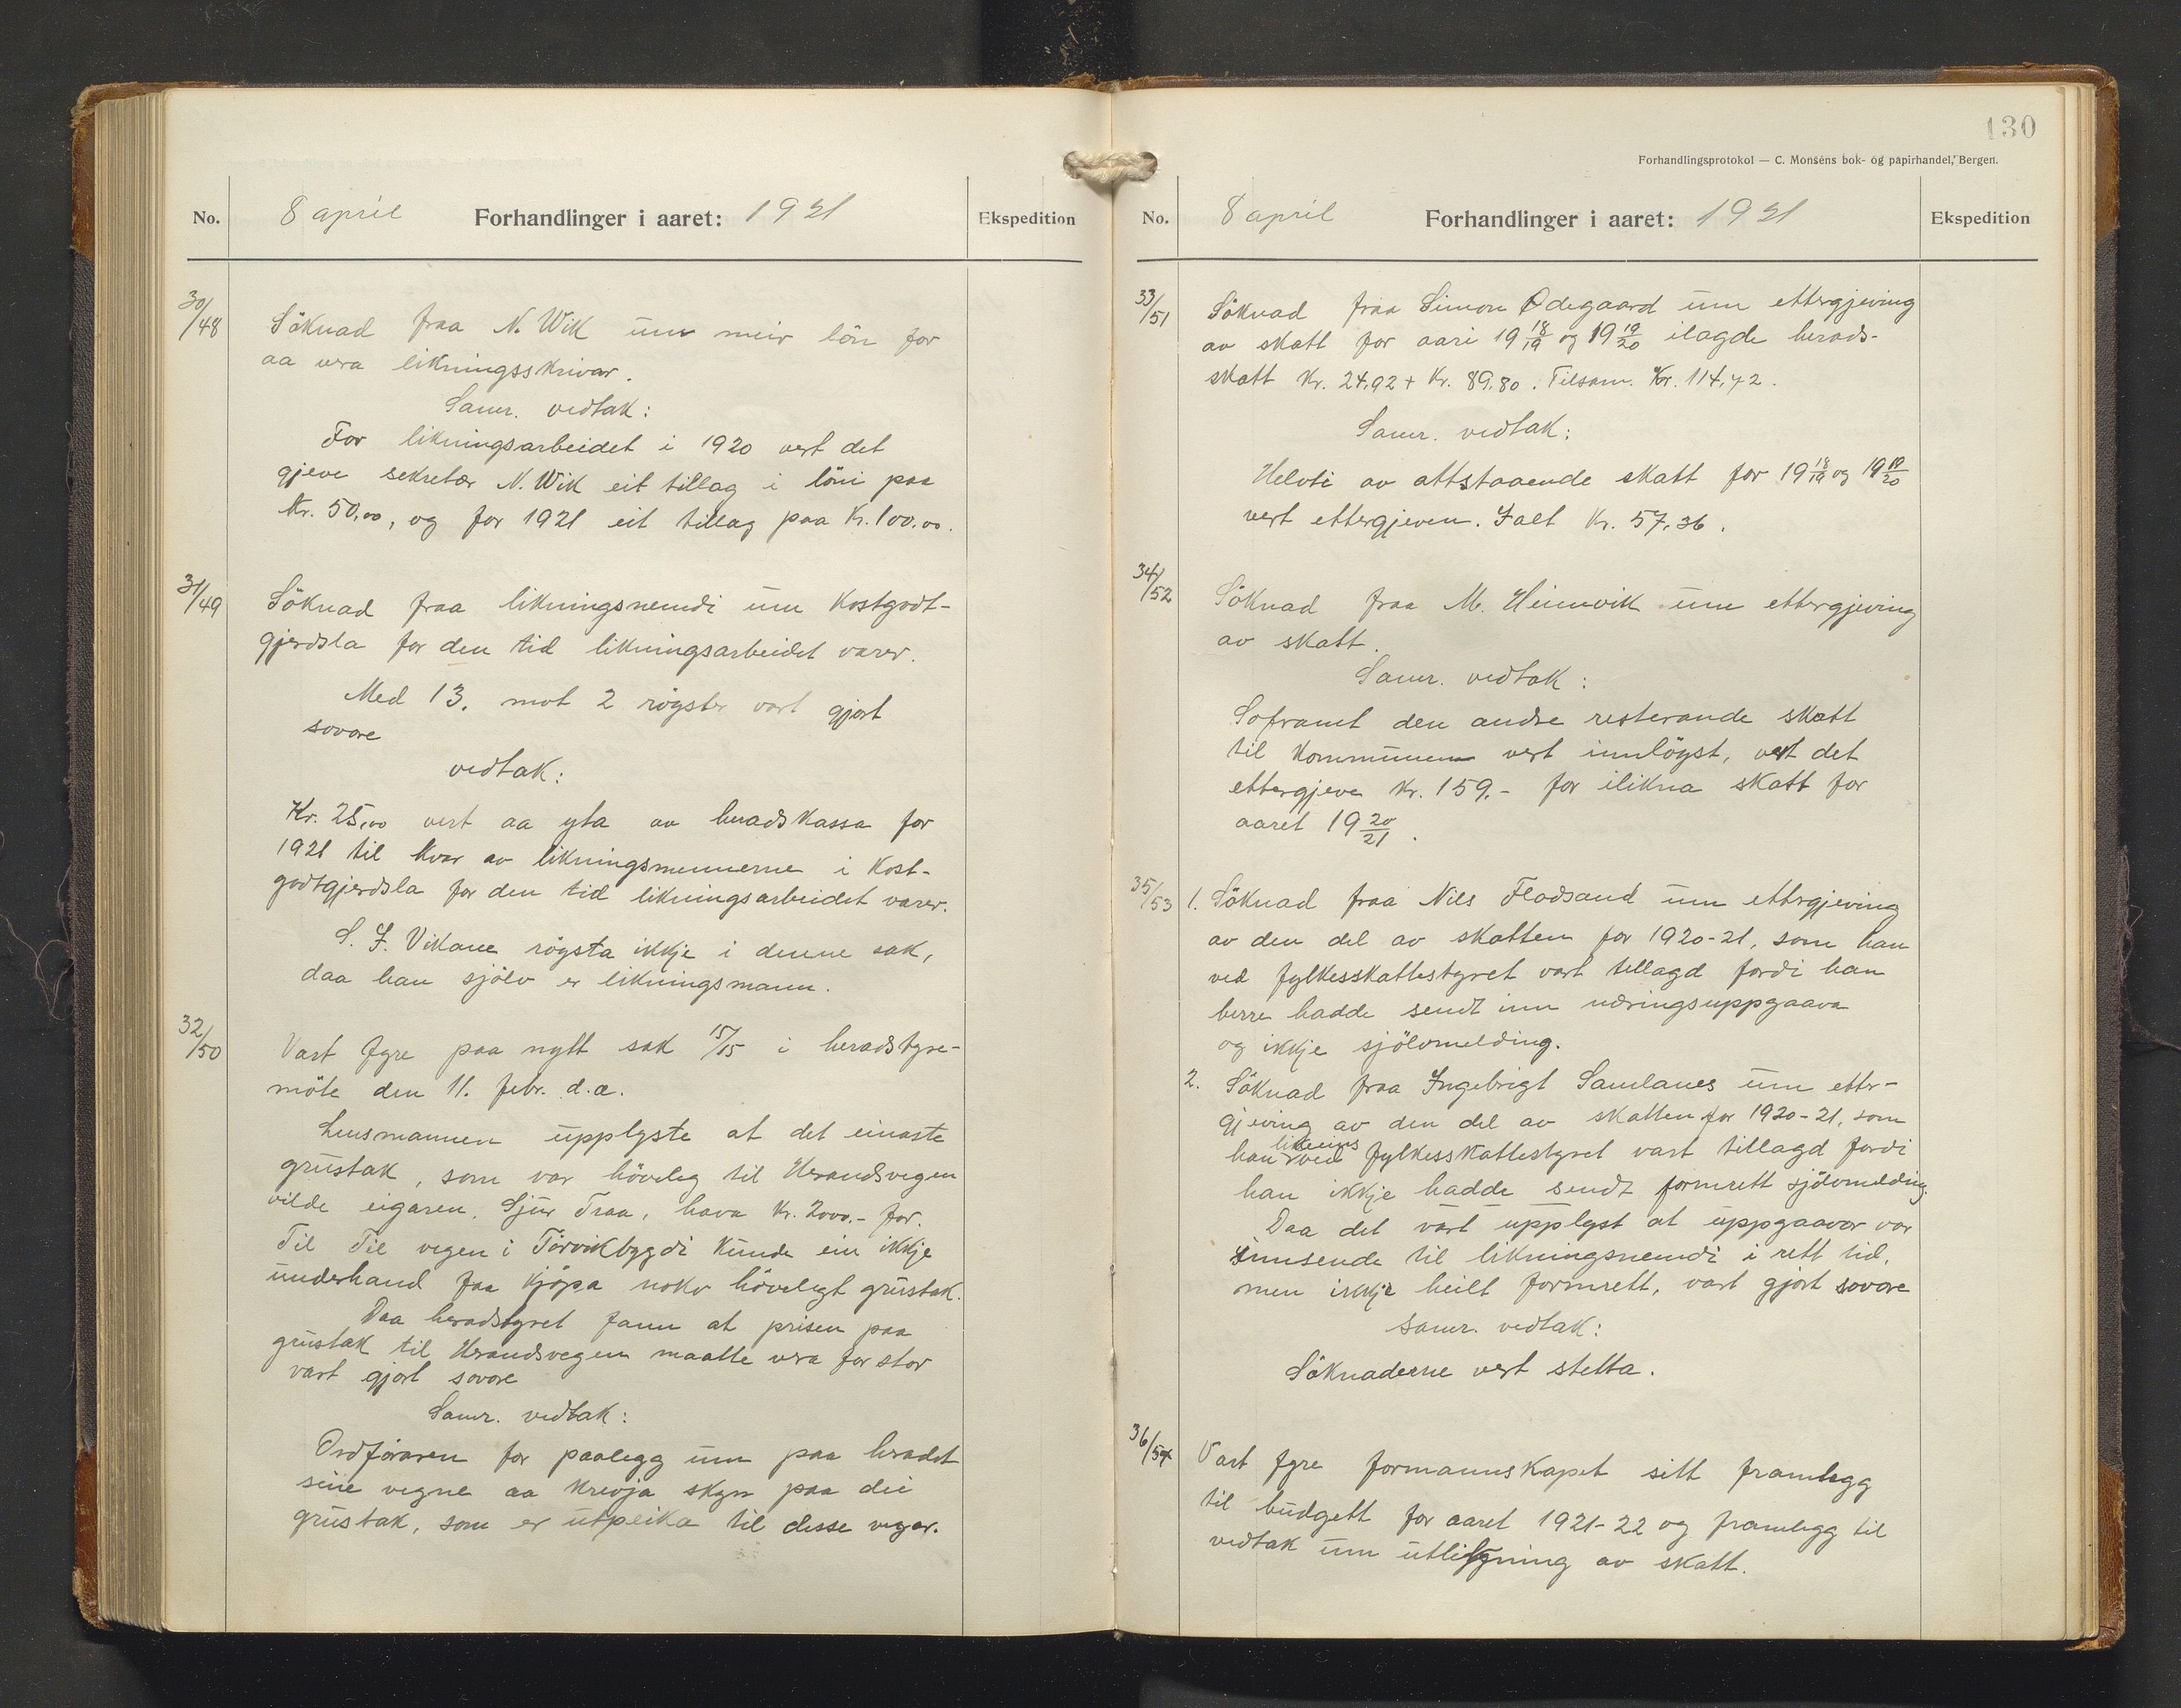 No.
8 april
Forhandlinger i aaret: 1921
Ekspedition
30/48
Söknad fraa N. Wik um meir lön for
aa vera likningsskrivar.
Samr. vedtak:
For likningsarbeidet i 1920 vert det
gjeve sekretær N. Wik eit tillag i löni paa
Kr. 50,00, og for 1921 eit tillag paa Kr. 100.00.
31/49
Söknad fraa likningsnemdi um Kostgodt-
gjerdsla for den tid likningsarbeidet varer.
Med 13. mot 2 röyster vart gjort
sovore
vedtak:
Kr. 25,00 vert aa yta av heradskassa for
1921 til kvar av likningsmennerne i Kost-
godtgjerdsla for den tid likningsarbeidet varer.
S. J. Vikane röysta ikkje i denne sak,
daa han sjölv er likningsmann.
32/50
Vart fyre paa nytt sak 15/15 i heradstyre-
möte den 11. febr. d.a.
Lensmannen upplyste at det einaste
grustak, som var höveleg til Herandsvegen
vilde eigaren, Sjur Traa, hava Kr. 2000.- for.
Til Til vegen i Törvikbygdi kunde ein ikkje
underhand faa kjöpa noko hövelegt grustak.
Daa heradstyret fann at prisen paa
grustak til Herandsvegen maatte vera for stor
vart gjort sovore
Samr. vedtak:
Ordföraren fær paalegg um paa heradet
sine vegne aa krevja skyn paa dei
grustak, som er utpeika til desse vegar.
130
Forhandlingsprotokol — C. Monsens bok- og papirhandel, Bergen.
No.
8 april
Forhandlinger i aaret: 1921
Ekspedition
33/51
Söknad fraa Simon Ødegaard um ettergjeving
av skatt for aari 19 18/19 og 19 19/20 ilagde herads-
skatt Kr. 24,92 + Kr. 89,80. Tilsam. Kr. 114,72.
Samr. vedtak:
Helvti av attstaaende skatt for 19 18/19 og 19 19/20
vert ettergjeven. Ialt Kr. 57,36.
34/52
Söknad fraa M. Heimvik um ettergjeving
av skatt.
Samr. vedtak:
Soframt den andre resterande skatt
til kommunen vert innlöyst, vert det
ettergjeve Kr. 159.- for ilikna skatt for
aaret 19 20/21.
35/53
1. Söknad fraa Nils Flodsand um ettergjeving
av den del av skatten for 1920-21, som han
ved fylkesskattestyret vart tillagd fordi han
berre hadde sendt inn næringsuppgaava
og ikkje sjölvmelding.
2. Söknad fraa Ingebrigt Samlanes um etter-
gjeving av den del av skatten for 1920-21, som
han likeeins ved fylkesskattestyret vart tillagd fordi
han ikkje hadde sendt formrett sjölvmelding.
Daa det vart upplyst at uppgaavor var
innsende til likningsnemdi i rett tid,
men ikkje heilt formrett, vart gjort sovore
samr. vedtak:
Söknaderne vert stetta.
36/54
Vart fyre formannskapet sitt framlegg
til budgett for aaret 1921-22 og framlegg til
vedtak um utligning av skatt.